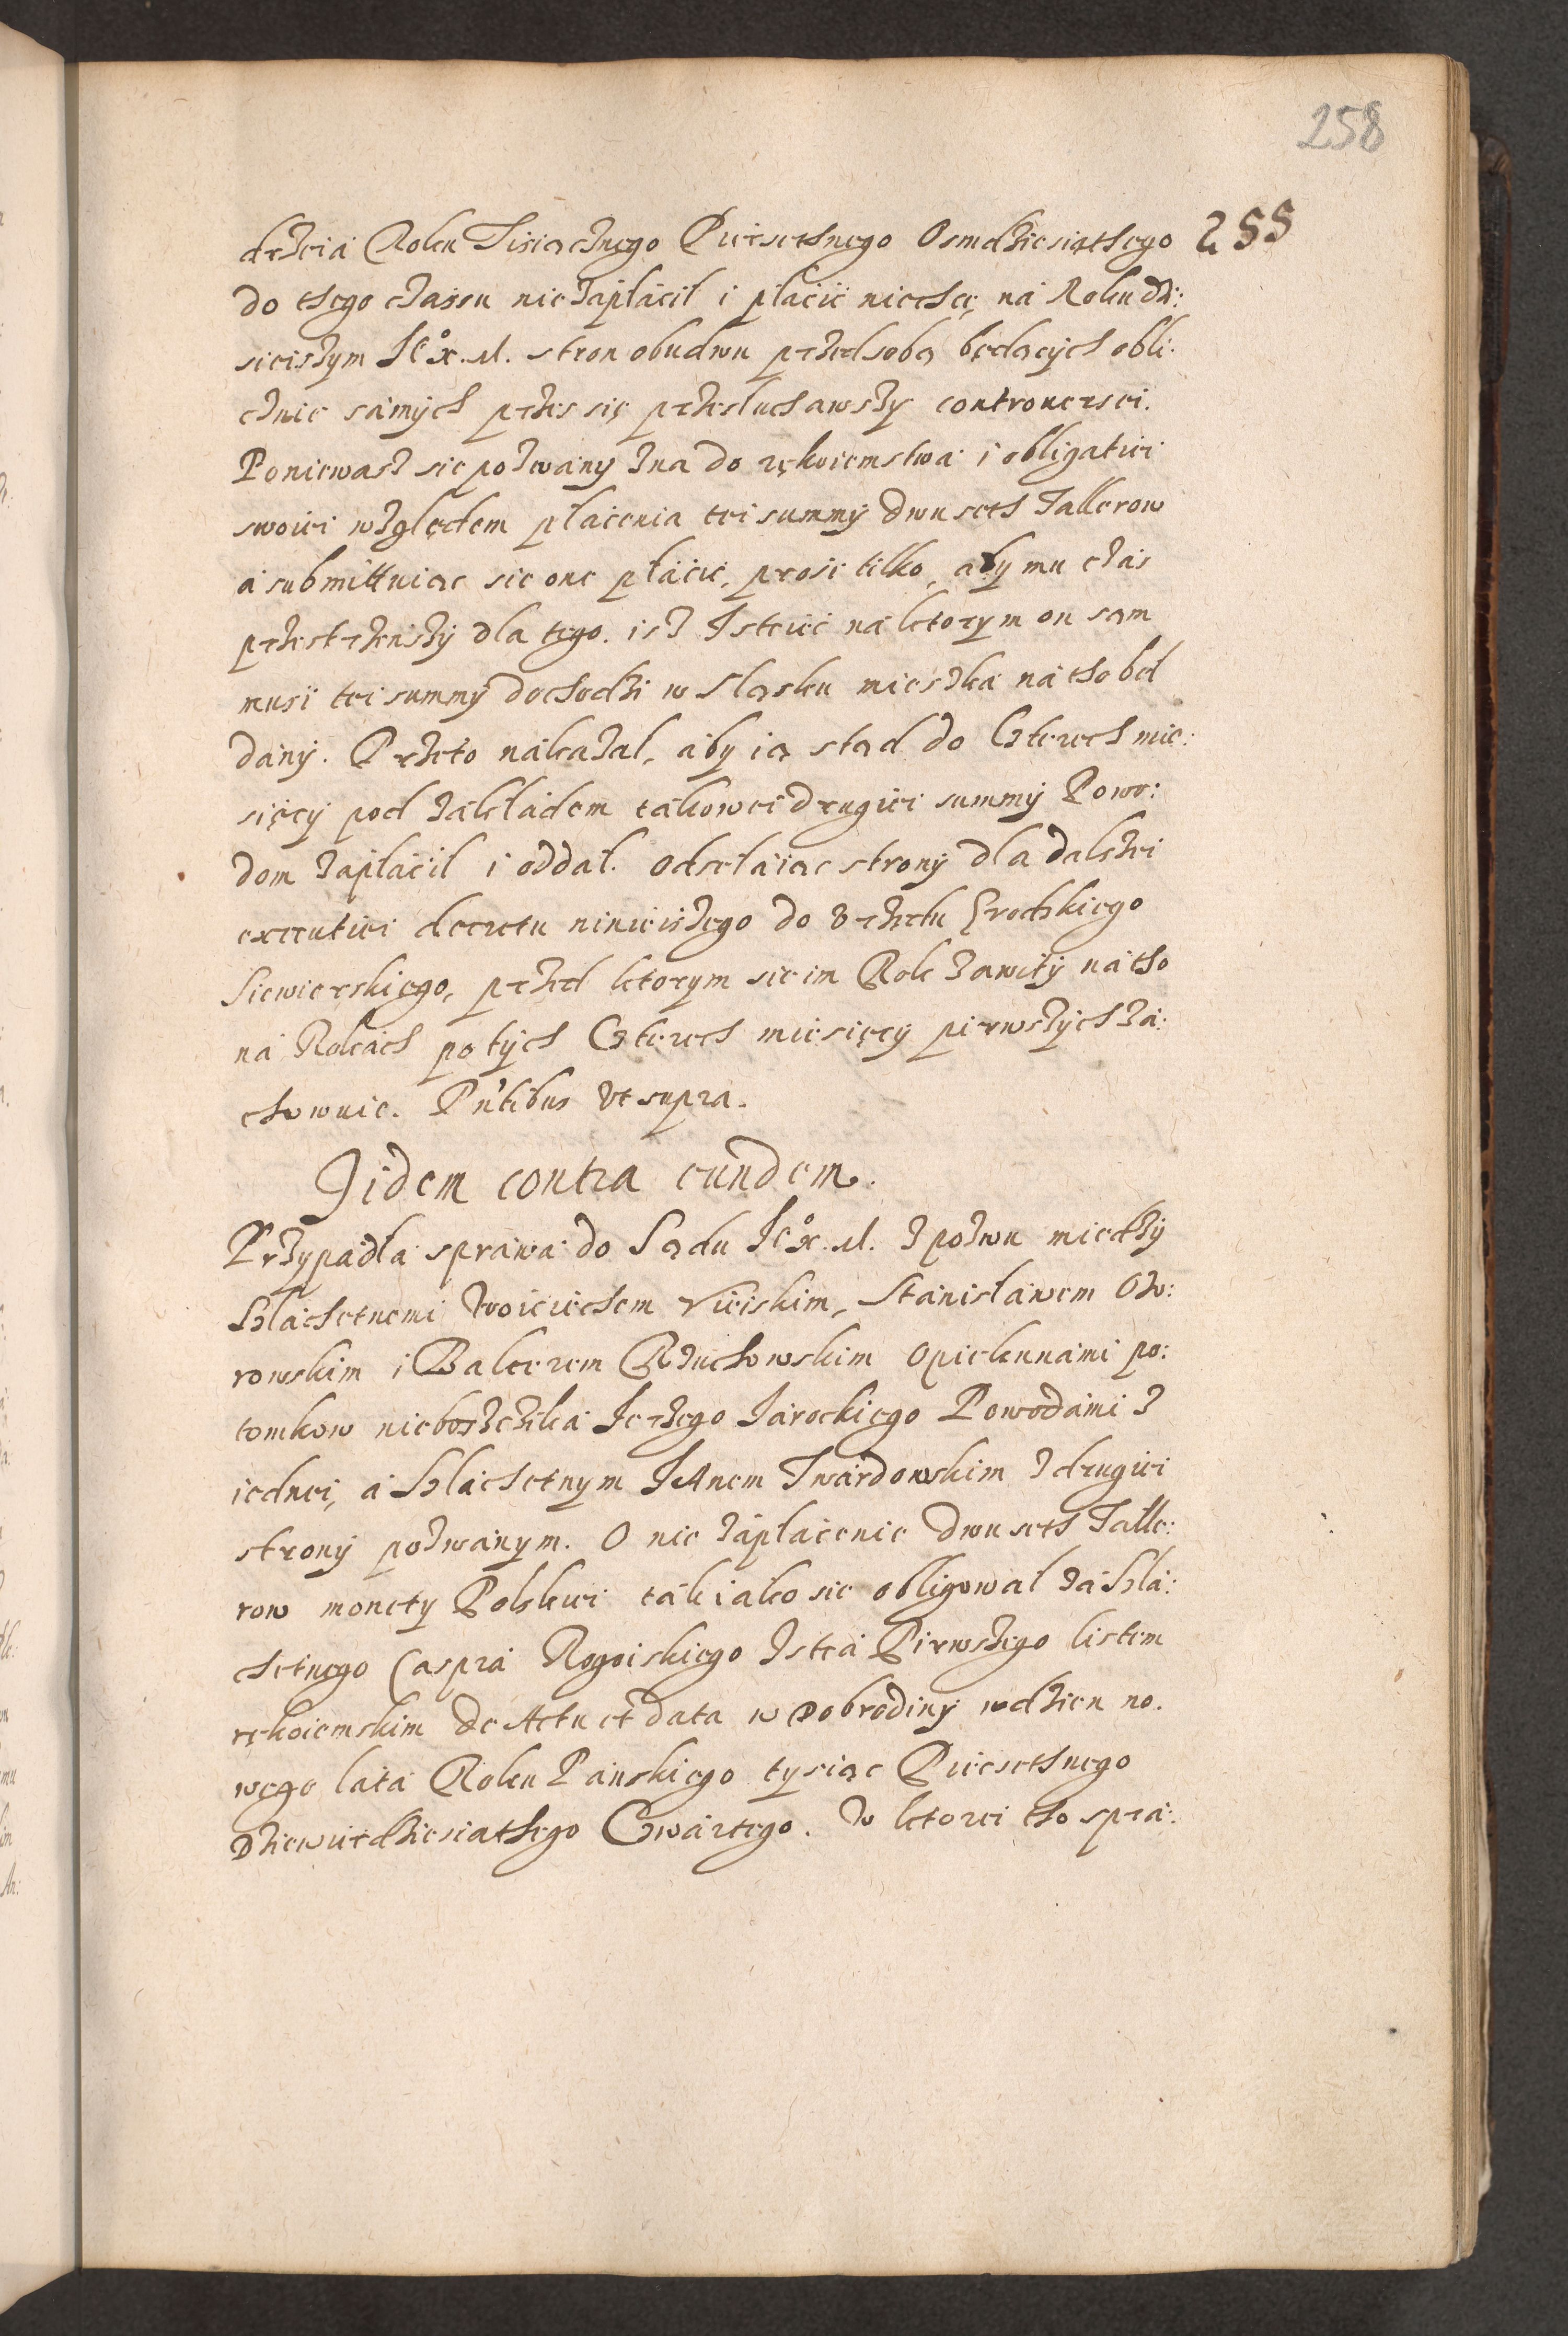 258
255
drzeia Roku Tisiącznego Piersethnego Osmdziesiąthego
do thego czassu nie zapłácił i płácić niechcę, ná Roku dzi:
sieiszym Je° x. M. stron obudwu przedsobą będących obli:
cznie sámych przes się przesłuchawszy controuersei.
Poniewasz sie pozwány zna do rękoiemstwá i obligatiei
swoiei względem płácenia tei summy dwuseth Tallerow
á submittuiąc sie one płácić, prosi tilko, aby mu czás
przestrzenszy dla tego. isz Isteić ná ktorym on sam
musi tei summy dochodzi w Sląsku mieszka ná tho bel
dány. Przeto nákazał, áby ią stąd do Czterech mie:
sięcy pod zákładem tákowei drugiei summy Powo:
dom zápłácił i oddał. Odsełáiąc strony dla dalszei
executiei decretu ninieiszego do Vrzędu Grodzkiego
Siewierskiego, przed ktorym sie im Rok zawity ná tho
ná Rokách po tych Czterech miesięcy pierwszych zá:
chowuie. Pn̄tibus Vt supra.
Jidem contra eundem.
Przypádła spráwá do Sądu Je° x. M. z pozwu miedzy
Szláchetnemi Woiciechem Vieiskim, Stánisławem Oz:
rowskim i Balcerem Rzuchowskim Opiekunnámi po:
tomkow nieboszczyká Jerzego Járockiego Powodámi z
iednei, á Szláchetnym JAnem Twárdowskim z drugiei
strony pozwánym. O nie zápłácenie dwuseth Talle:
row monety Polskiei ták iáko sie obligował zá Szlá:
chetnego Caspra Rogoiskiego Istcá Pirwszego listem
rękoiemskim de Actu et data w Dobrodiny wdzien no.
wego látá Roku Páńskiego tysiąc Piesethnego
Dziewiedziesiathego Czwártego. W ktorei tho sprá: